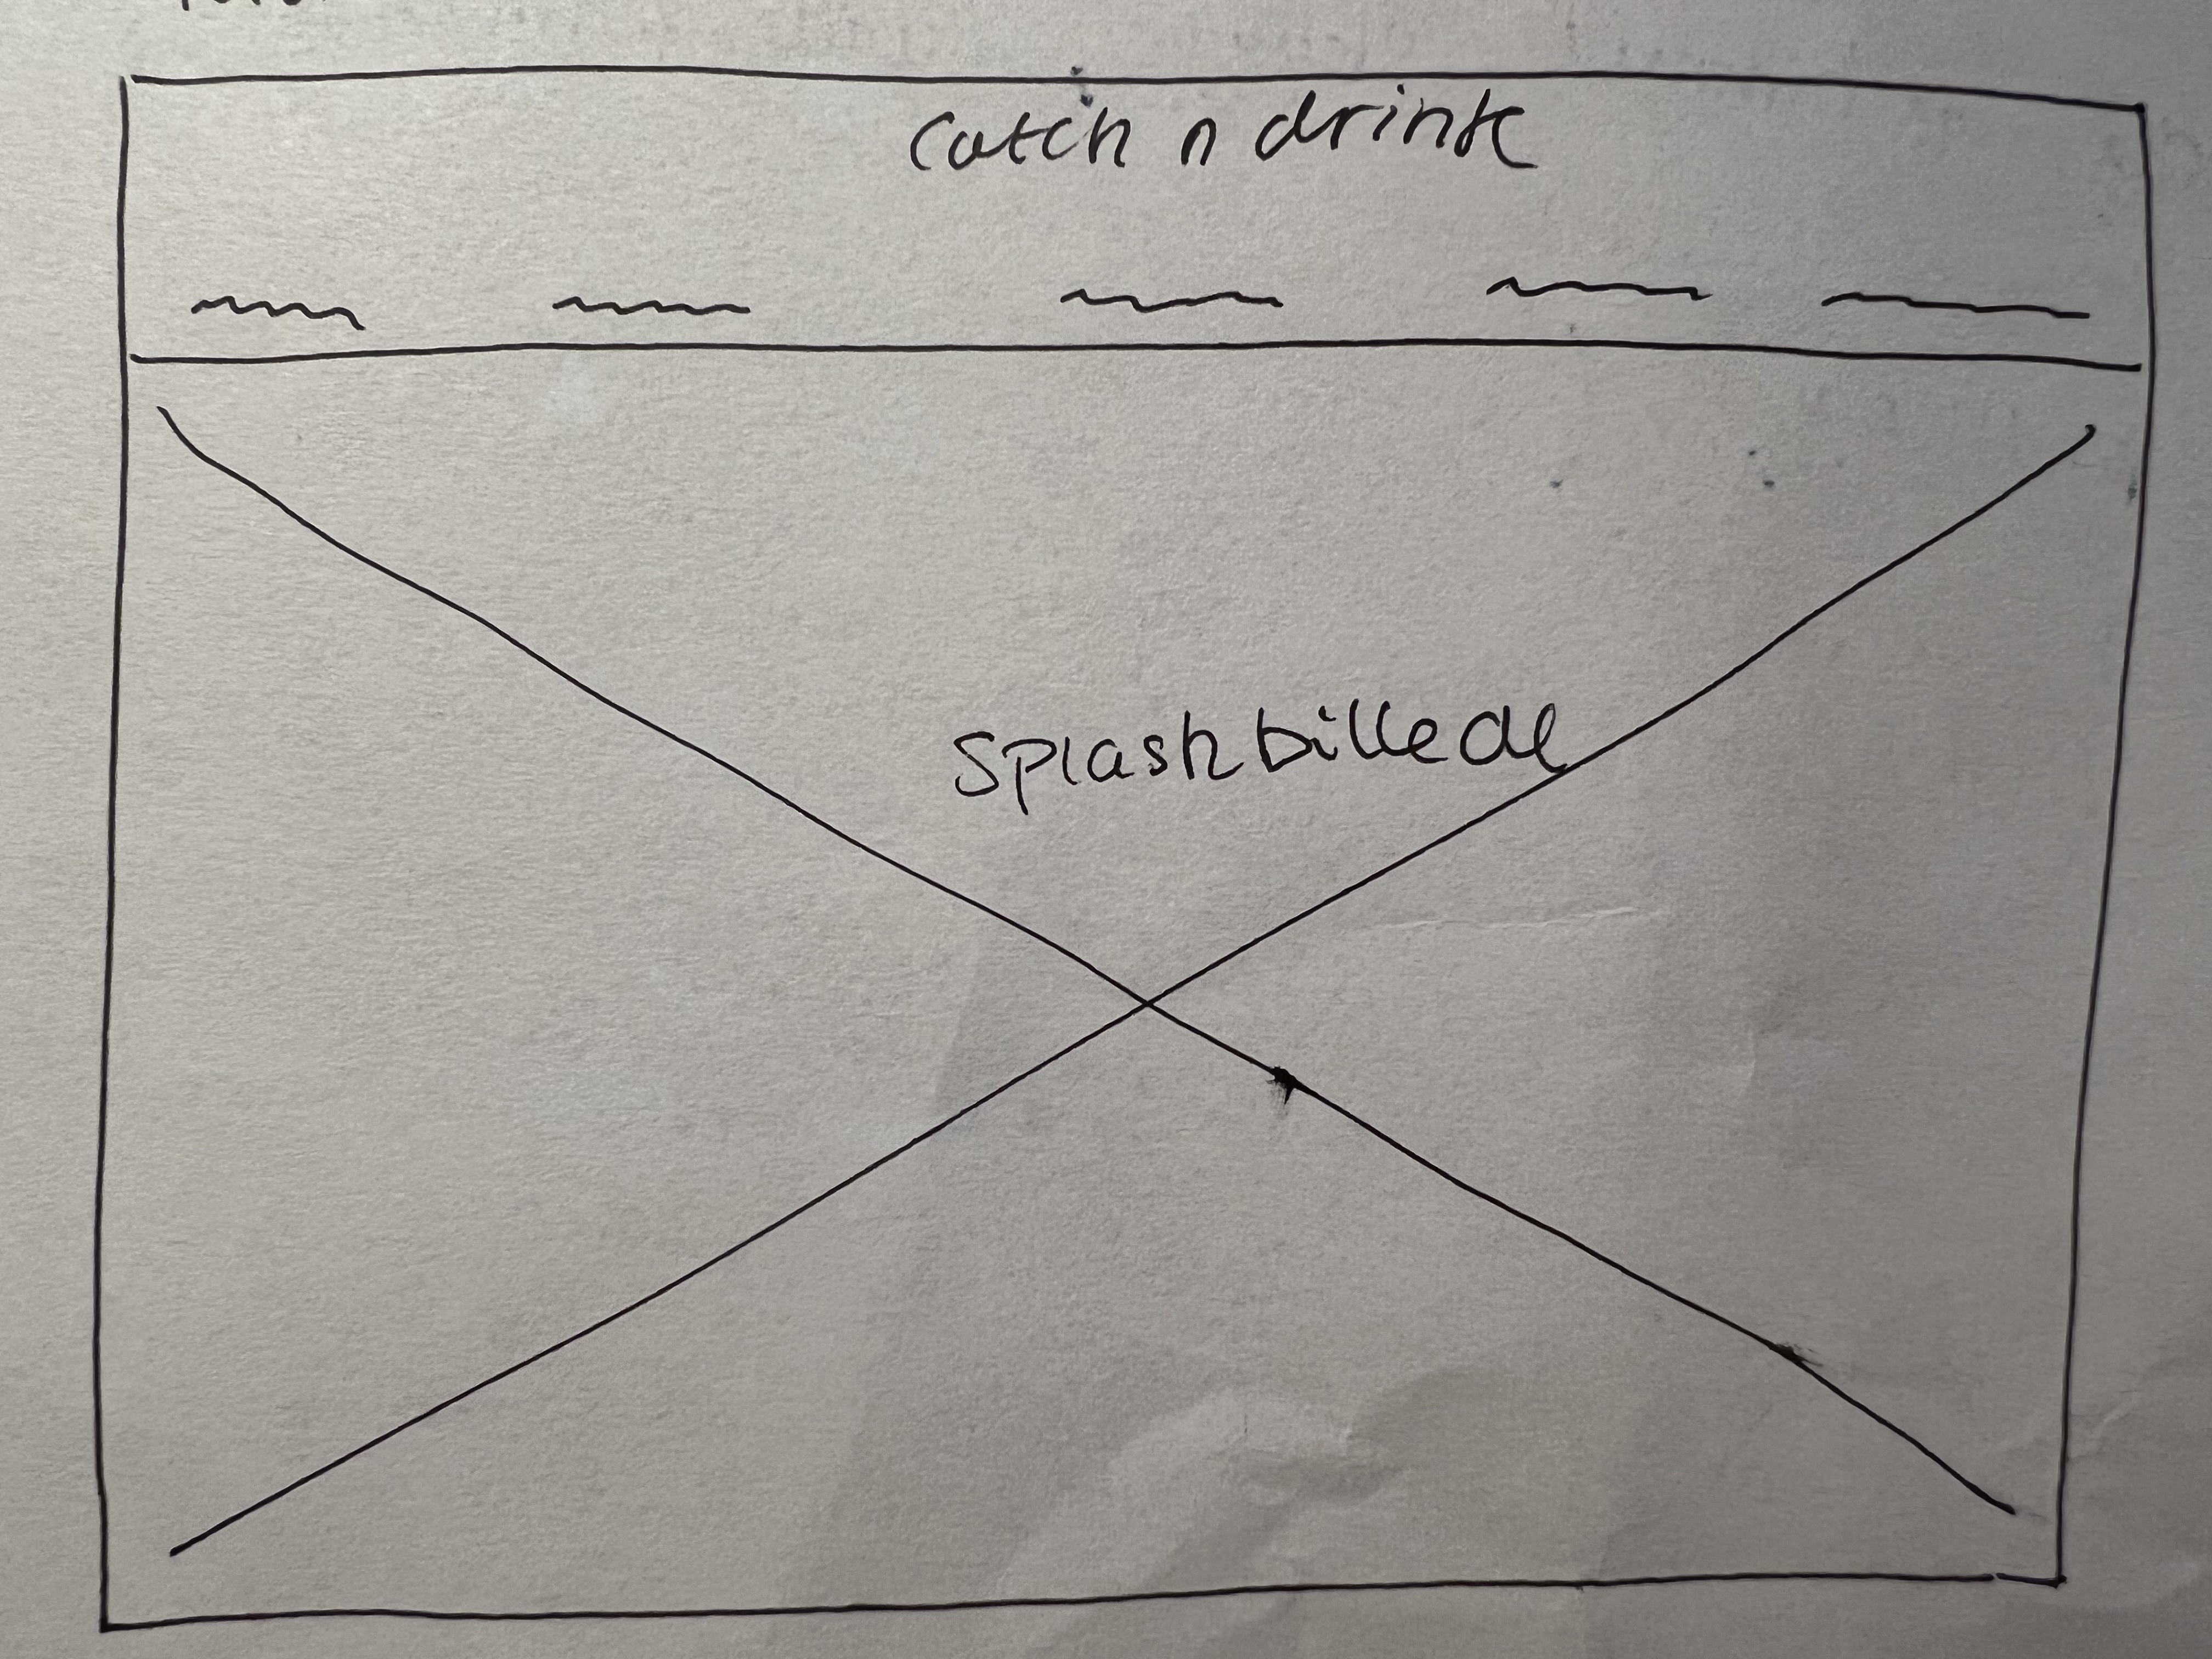 Catch n drink
Splashbillede